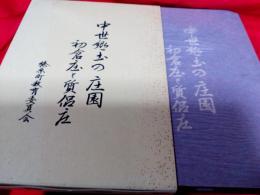 中世郷土の庄園
初倉庄と質侶庄
榛原町教育委員会
中世郷土の庄園
初倉庄と質侶庄